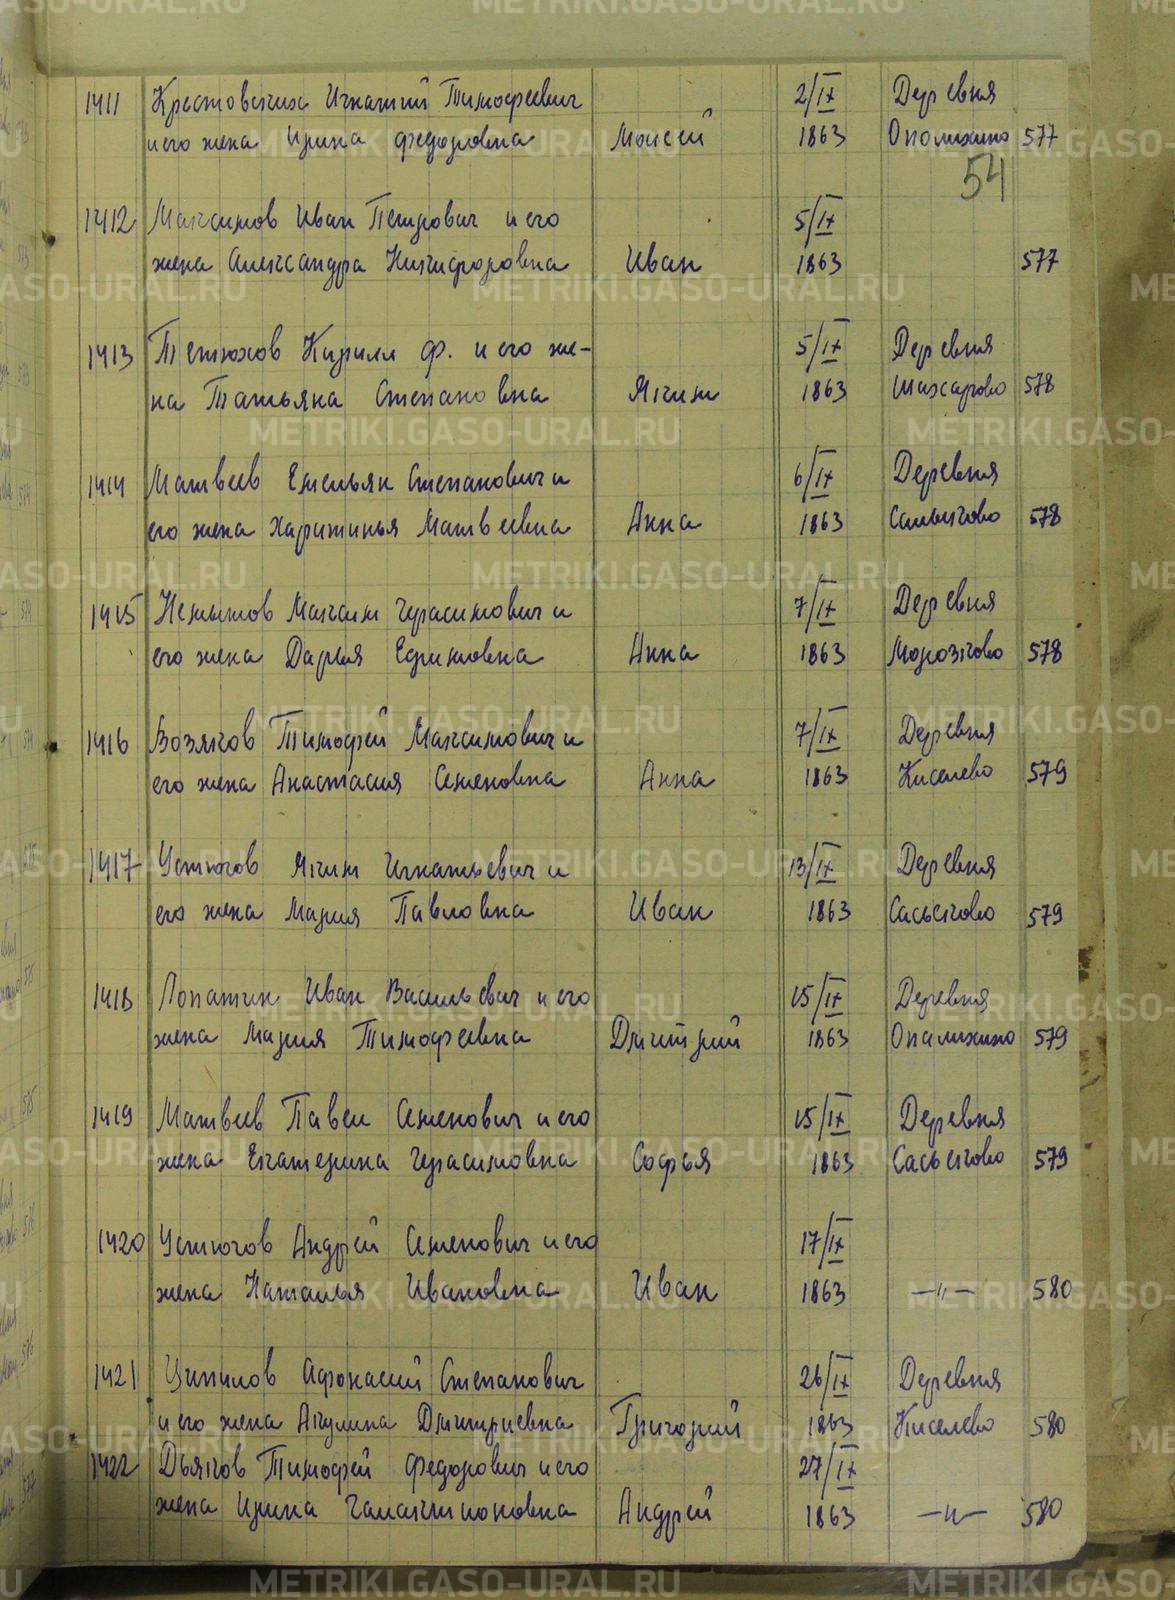 METRIKI.GASO-URAL.RU
1411 Крестовских Игнатий Тимофеевич 2/IX Деревня
и его жена Ирина Федоровна Моисей 1863 Опалихино 577
54
1412 Максимов Иван Петрович и его 5/IX
жена Александра Никифоровна Иван 1863 577
1413 Тетюхов Кирилл Ф. и его же- 5/IX Деревня
на Татьяна Степановна Яким 1863 578
1414 Матвеев Емельян Степанович и 6/IX Деревня
его жена Харитинья Матвеевна Анна 1863 578
1415 Максим Герасимович и 7/IX Деревня
его жена Дарья Ефимовна Анна 1863 Морозково 578
1416 Возяков Тимофей Максимович и 7/IX Деревня
его жена Анастасия Семеновна Анна 1863 Киселево 579
1417 Устюгов Яким Игнатьевич и 13/IX Деревня
его жена Мария Павловна Иван 1863 Сасыково 579
1418 Лопатин Иван Васильевич и его 15/IX Деревня
жена Мария Тимофеевна Дмитрий 1863 Опалихино 579
1419 Матвеев Павел Семенович и его 15/IX Деревня
жена Екатерина Герасимовна Софья 1863 Сасыково 579
1420 Устюгов Андрей Семенович и его 17/IX
жена Наталья Ивановна Иван 1863 —"— 580
1421 Ципилов Афонасий Степанович 26/IX Деревня
и его жена Акулина Дмитриевна Григорий 1863 Киселево 580
1422 Дьяков Тимофей Федорович и его 27/IX
жена Ирина Андрей 1863 —"— 580